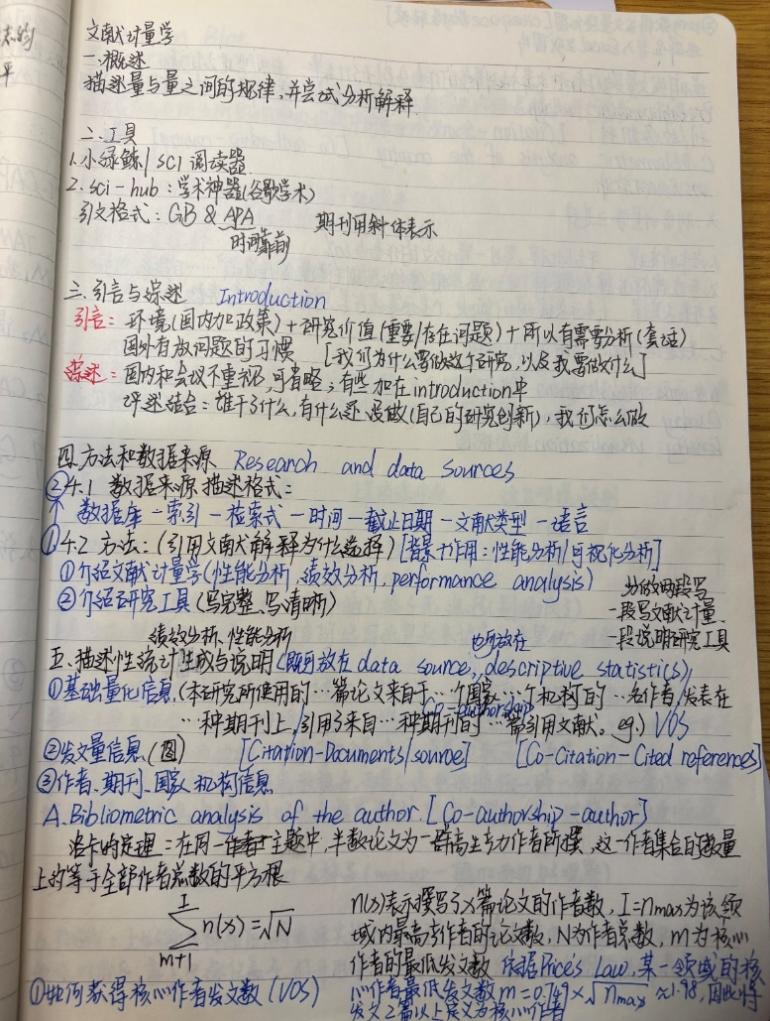 文献计量学
一.概述
描述量与量之间的规律,并尝试分析解释.
二.工具
1.小绿鲸 | SCI 阅读器
2.sci-hub:学术神器(谷歌学术)
引文格式:GB & APA 期刊用斜体表示
时间靠前
三.引言与综述 Introduction
引言:环境(国内加政策)+研究价值(重要/存在问题)+所以有需要分析(套话)
国外有放问题的习惯 [我们为什么要做这个研究,以及我要做什么]
综述:国内和会议不重视,可省略;有些加在introduction中
评述结合:谁干了什么,有什么还没做(自己的研究创新),我们怎么做
四.方法和数据来源 Research and data sources
②4.1 数据来源描述格式:
数据库-索引-检索式-时间-截止日期-文献类型-语言
①4.2 方法:(引用文献解释为什么选择)[背景+作用:性能分析/可视化分析]
①介绍文献计量学(性能分析,绩效分析,performance analysis)
②介绍研究工具(写完整、写清晰)
分做两段写
一段写文献计量,
一段说明研究工具
绩效分析、性能分析 也可放在
五.描述性统计生成与说明(既可放在data source, descriptive statistics)
①基础量化信息.(本研究所使用的…篇论文来自于…个国家…个机构的…名作者,发表在
Co-authorship
…种期刊上,引用了来自…种期刊的…篇引用文献. eg.) VOS
②发文量信息.(图) [Citation-Documents/source] [Co-Citation-Cited references]
③作者、期刊、国家、机构信息
A.Bibliometric analysis of the author.[Co-authorship-author]
洛卡的定理:在同一主题中,半数论文为一群高生产力作者所撰,这一作者集合的数量
上约等于全部作者总数的平方根
I
∑ n(x)=√N
m+1
n(x)表示撰写了x篇论文的作者数,I=nmax为该领
域内最高产作者的论文数,N为作者总数,m为核心
作者的最低发文数 依据Price's Law,某一领域的核
心作者最低发文数 m=0.749×√nmax ≈1.98,因此将
发文2篇以上定义为核心作者
①如何获得核心作者发文数(VOS)